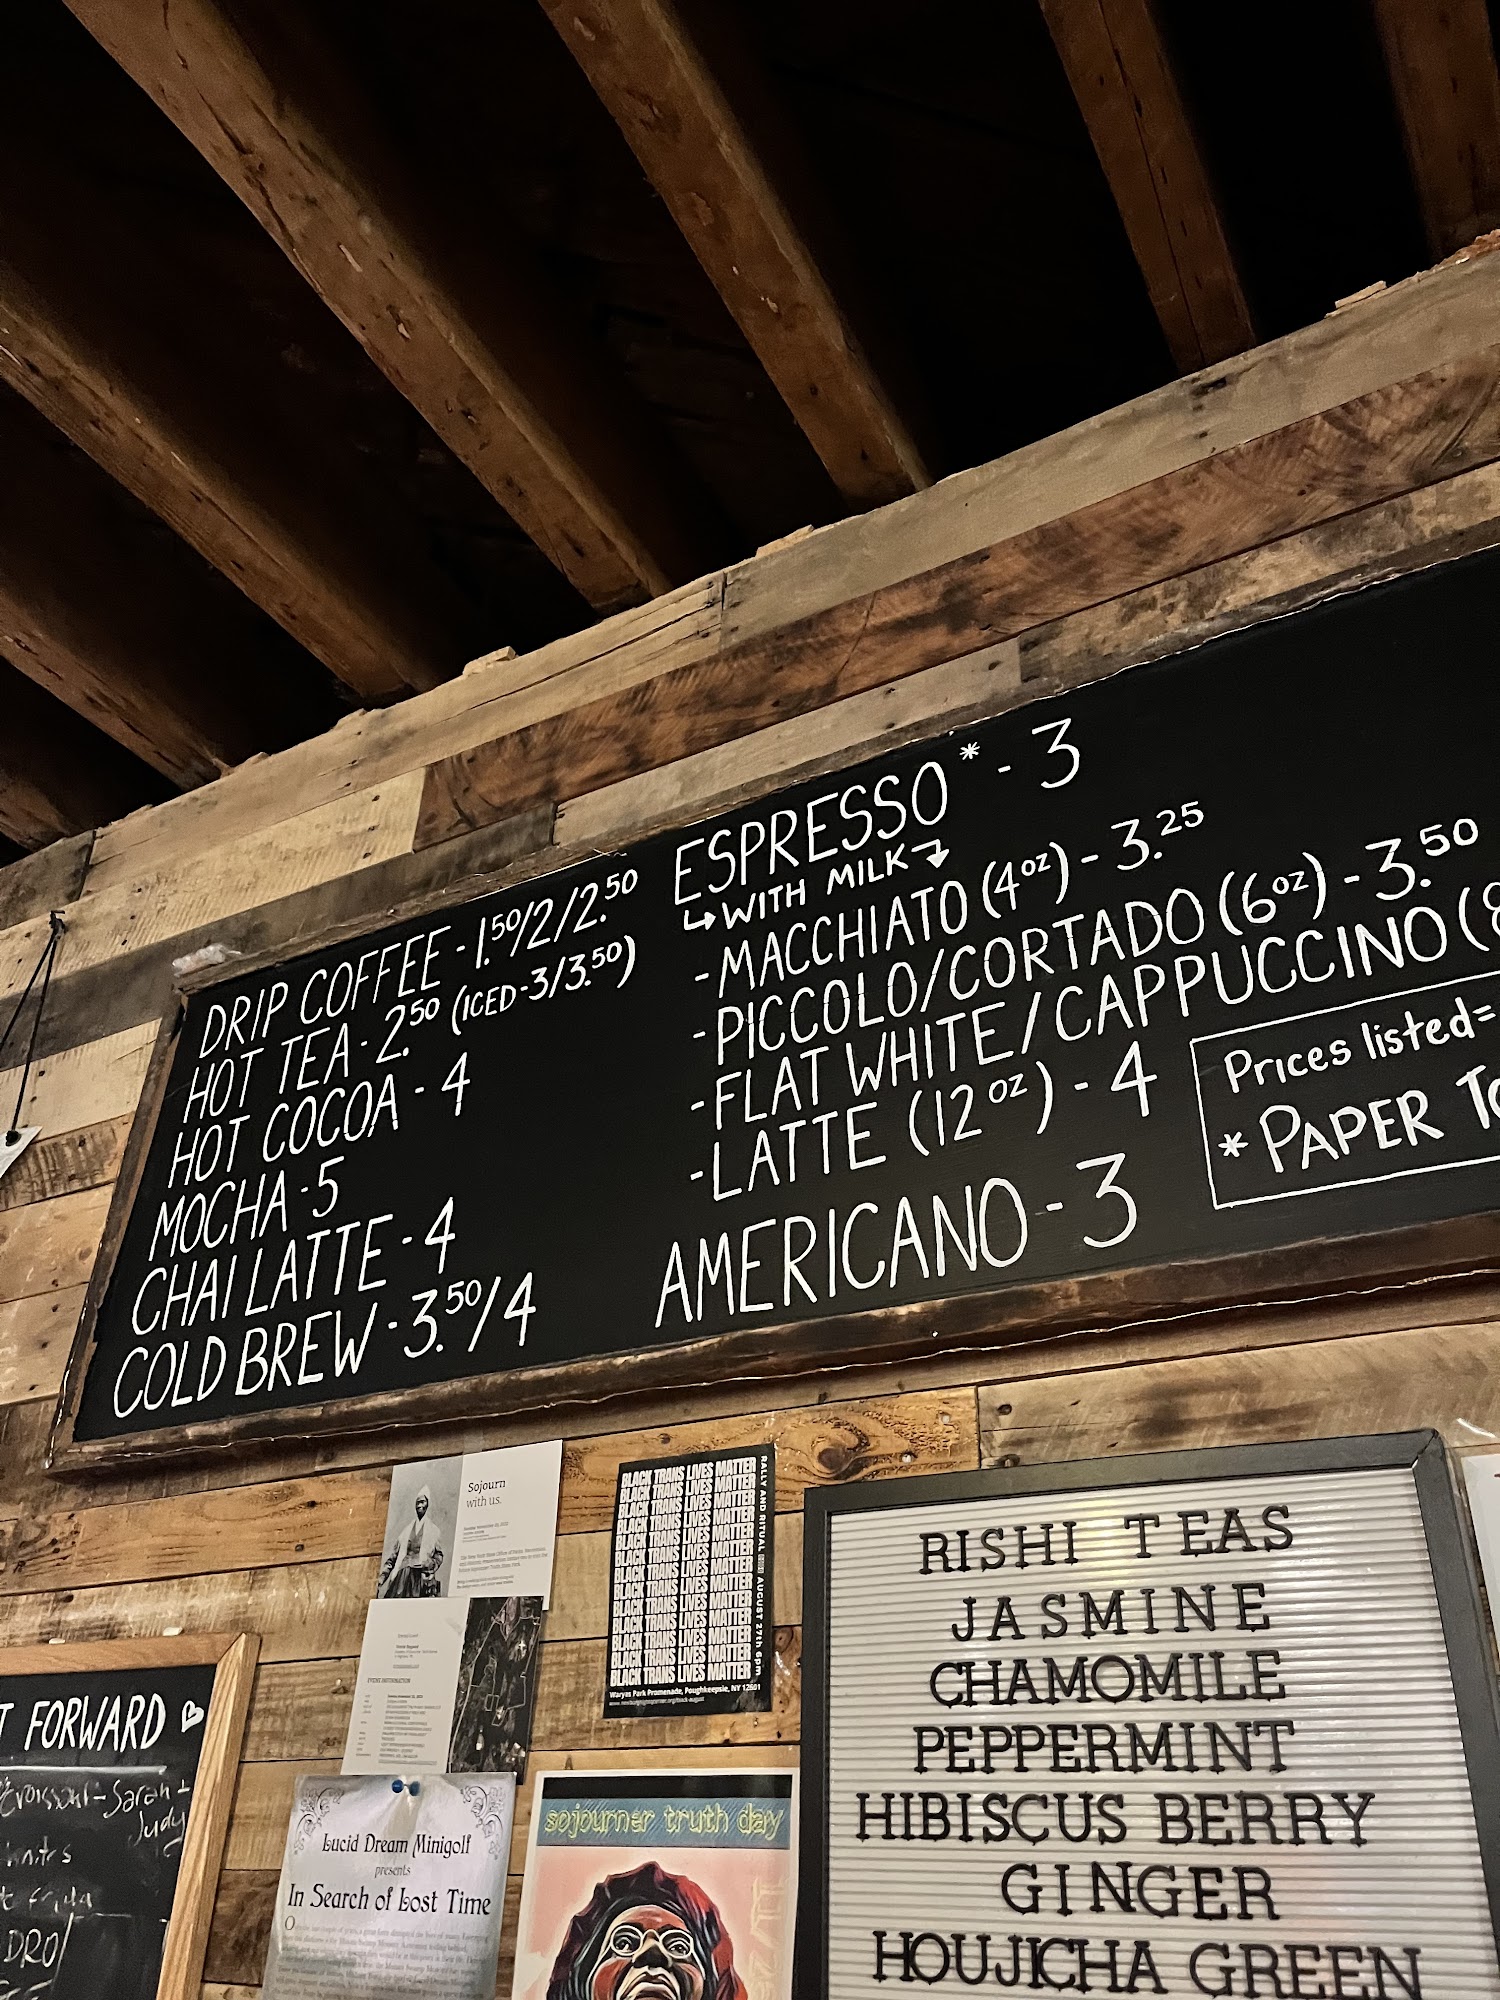 DRIP COFFEE - 1.50/2/2.50
HOT TEA - 2.50 (ICED - 3/3.50)
HOT COCOA - 4
MOCHA - 5
CHAI LATTE - 4
COLD BREW - 3.50/4
ESPRESSO* - 3
↳ WITH MILK ↴
- MACCHIATO (4oz) - 3.25
- PICCOLO/CORTADO (6oz) - 3.50
- FLAT WHITE/CAPPUCCINO (8
- LATTE (12oz) - 4
AMERICANO - 3
Prices listed=
* PAPER TO
Sojourn
with us.
EVENT INFORMATION
BLACK TRANS LIVES MATTER
BLACK TRANS LIVES MATTER
BLACK TRANS LIVES MATTER
BLACK TRANS LIVES MATTER
BLACK TRANS LIVES MATTER
BLACK TRANS LIVES MATTER
BLACK TRANS LIVES MATTER
BLACK TRANS LIVES MATTER
BLACK TRANS LIVES MATTER
BLACK TRANS LIVES MATTER
BLACK TRANS LIVES MATTER
BLACK TRANS LIVES MATTER
BLACK TRANS LIVES MATTER
BLACK TRANS LIVES MATTER
RALLY AND RITUAL AUGUST 27th 6pm
Waryas Park Promenade, Poughkeepsie, NY 12601
RISHI TEAS
JASMINE
CHAMOMILE
PEPPERMINT
HIBISCUS BERRY
GINGER
HOUJICHA GREEN
T FORWARD
Croissant - Sarah +
Judy
DRO
Lucid Dream Minigolf
presents
In Search of Lost Time
sojourner truth day